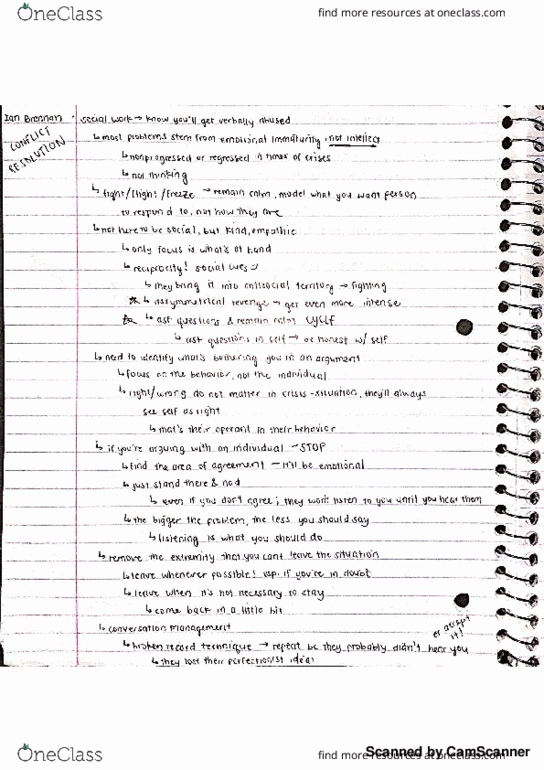 OneClass
find more resources at oneclass.com
Ian Brennan
CONFLICT
RESOLUTION
social work → know you'll get verbally abused
↳ most problems stem from emotional immaturity not intellect
↳ nonprogressed or regressed in times of crises
↳ not thinking
↳ fight/flight/freeze → remain calm, model what you want person
to respond to, not how they are
↳ not here to be social, but kind, empathic
↳ only focus is what's at hand
↳ reciprocity! social cues
↳ they bring it into antisocial territory → fighting
↳ assymmetrical revenge → get even more intense
↳ ask questions & remain calm
↳ ask questions in self → be honest w/ self
↳ need to identify what's bothering you in an argument
↳ focus on the behavior, not the individual
↳ right/wrong do not matter in crisis-situation, they'll always
see self as right
↳ that's their operant in their behavior
↳ if you're arguing with an individual - STOP
↳ find the area of agreement - it'll be emotional
↳ just stand there & nod
↳ even if you don't agree; they won't listen to you until you hear them
↳ the bigger the problem, the less you should say
↳ listening is what you should do
↳ remove the extremity that you cant leave the situation
↳ leave whenever possible! esp. if you're in doubt
↳ leave when it's not necessary to stay
↳ come back in a little bit
↳ conversation management
↳ broken record technique → repeat bc they probably didn't hear you
or accept
it!
↳ they lost their perfectionist ideal
Scanned by CamScanner
OneClass
find more resources at oneclass.com